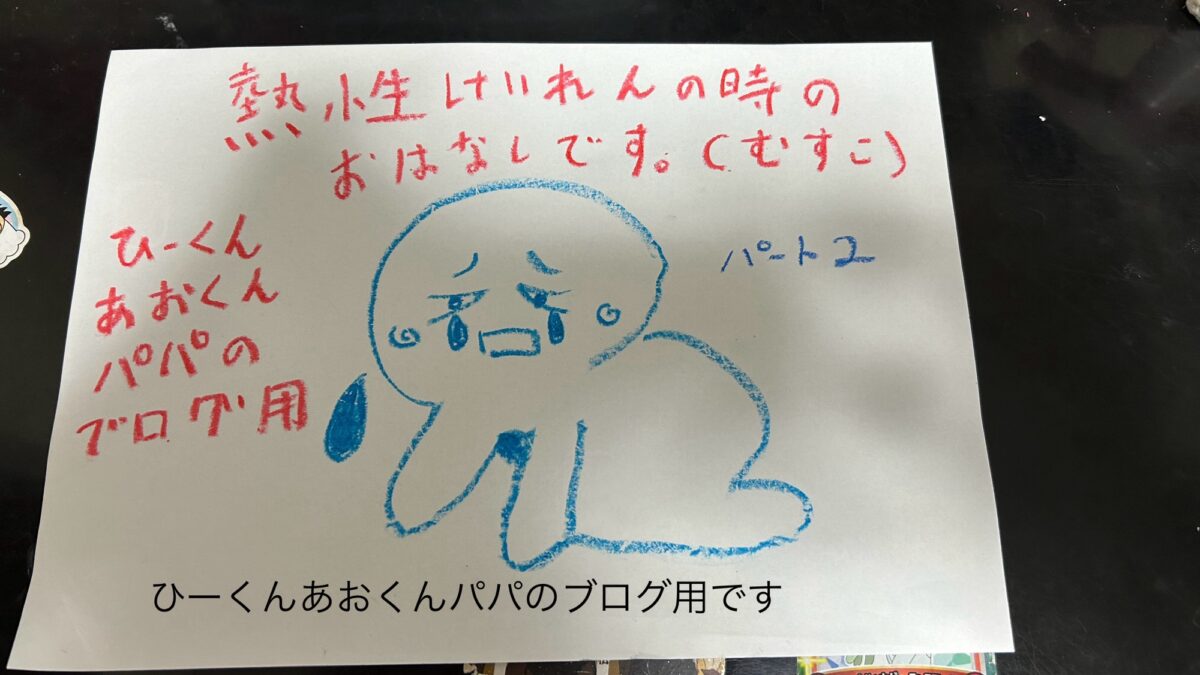 熱性けいれんの時の
おはなしです。(むすこ)
ひーくん
あおくん
パパの
ブログ用
パート2
ひーくんあおくんパパのブログ用です